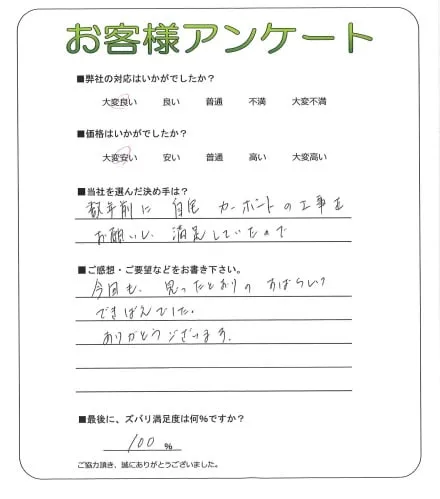 お客様アンケート
■弊社の対応はいかがでしたか？
大変良い 良い 普通 不満 大変不満
■価格はいかがでしたか？
大変安い 安い 普通 高い 大変高い
■当社を選んだ決め手は？
数年前に 自宅 カーポートの工事を
お願いし 満足していたので
■ご感想・ご要望などをお書き下さい。
今回も、思ったとおりの すばらしい
できばえでした。
ありがとうございます。
■最後に、ズバリ満足度は何％ですか？
100 %
ご協力頂き、誠にありがとうございました。